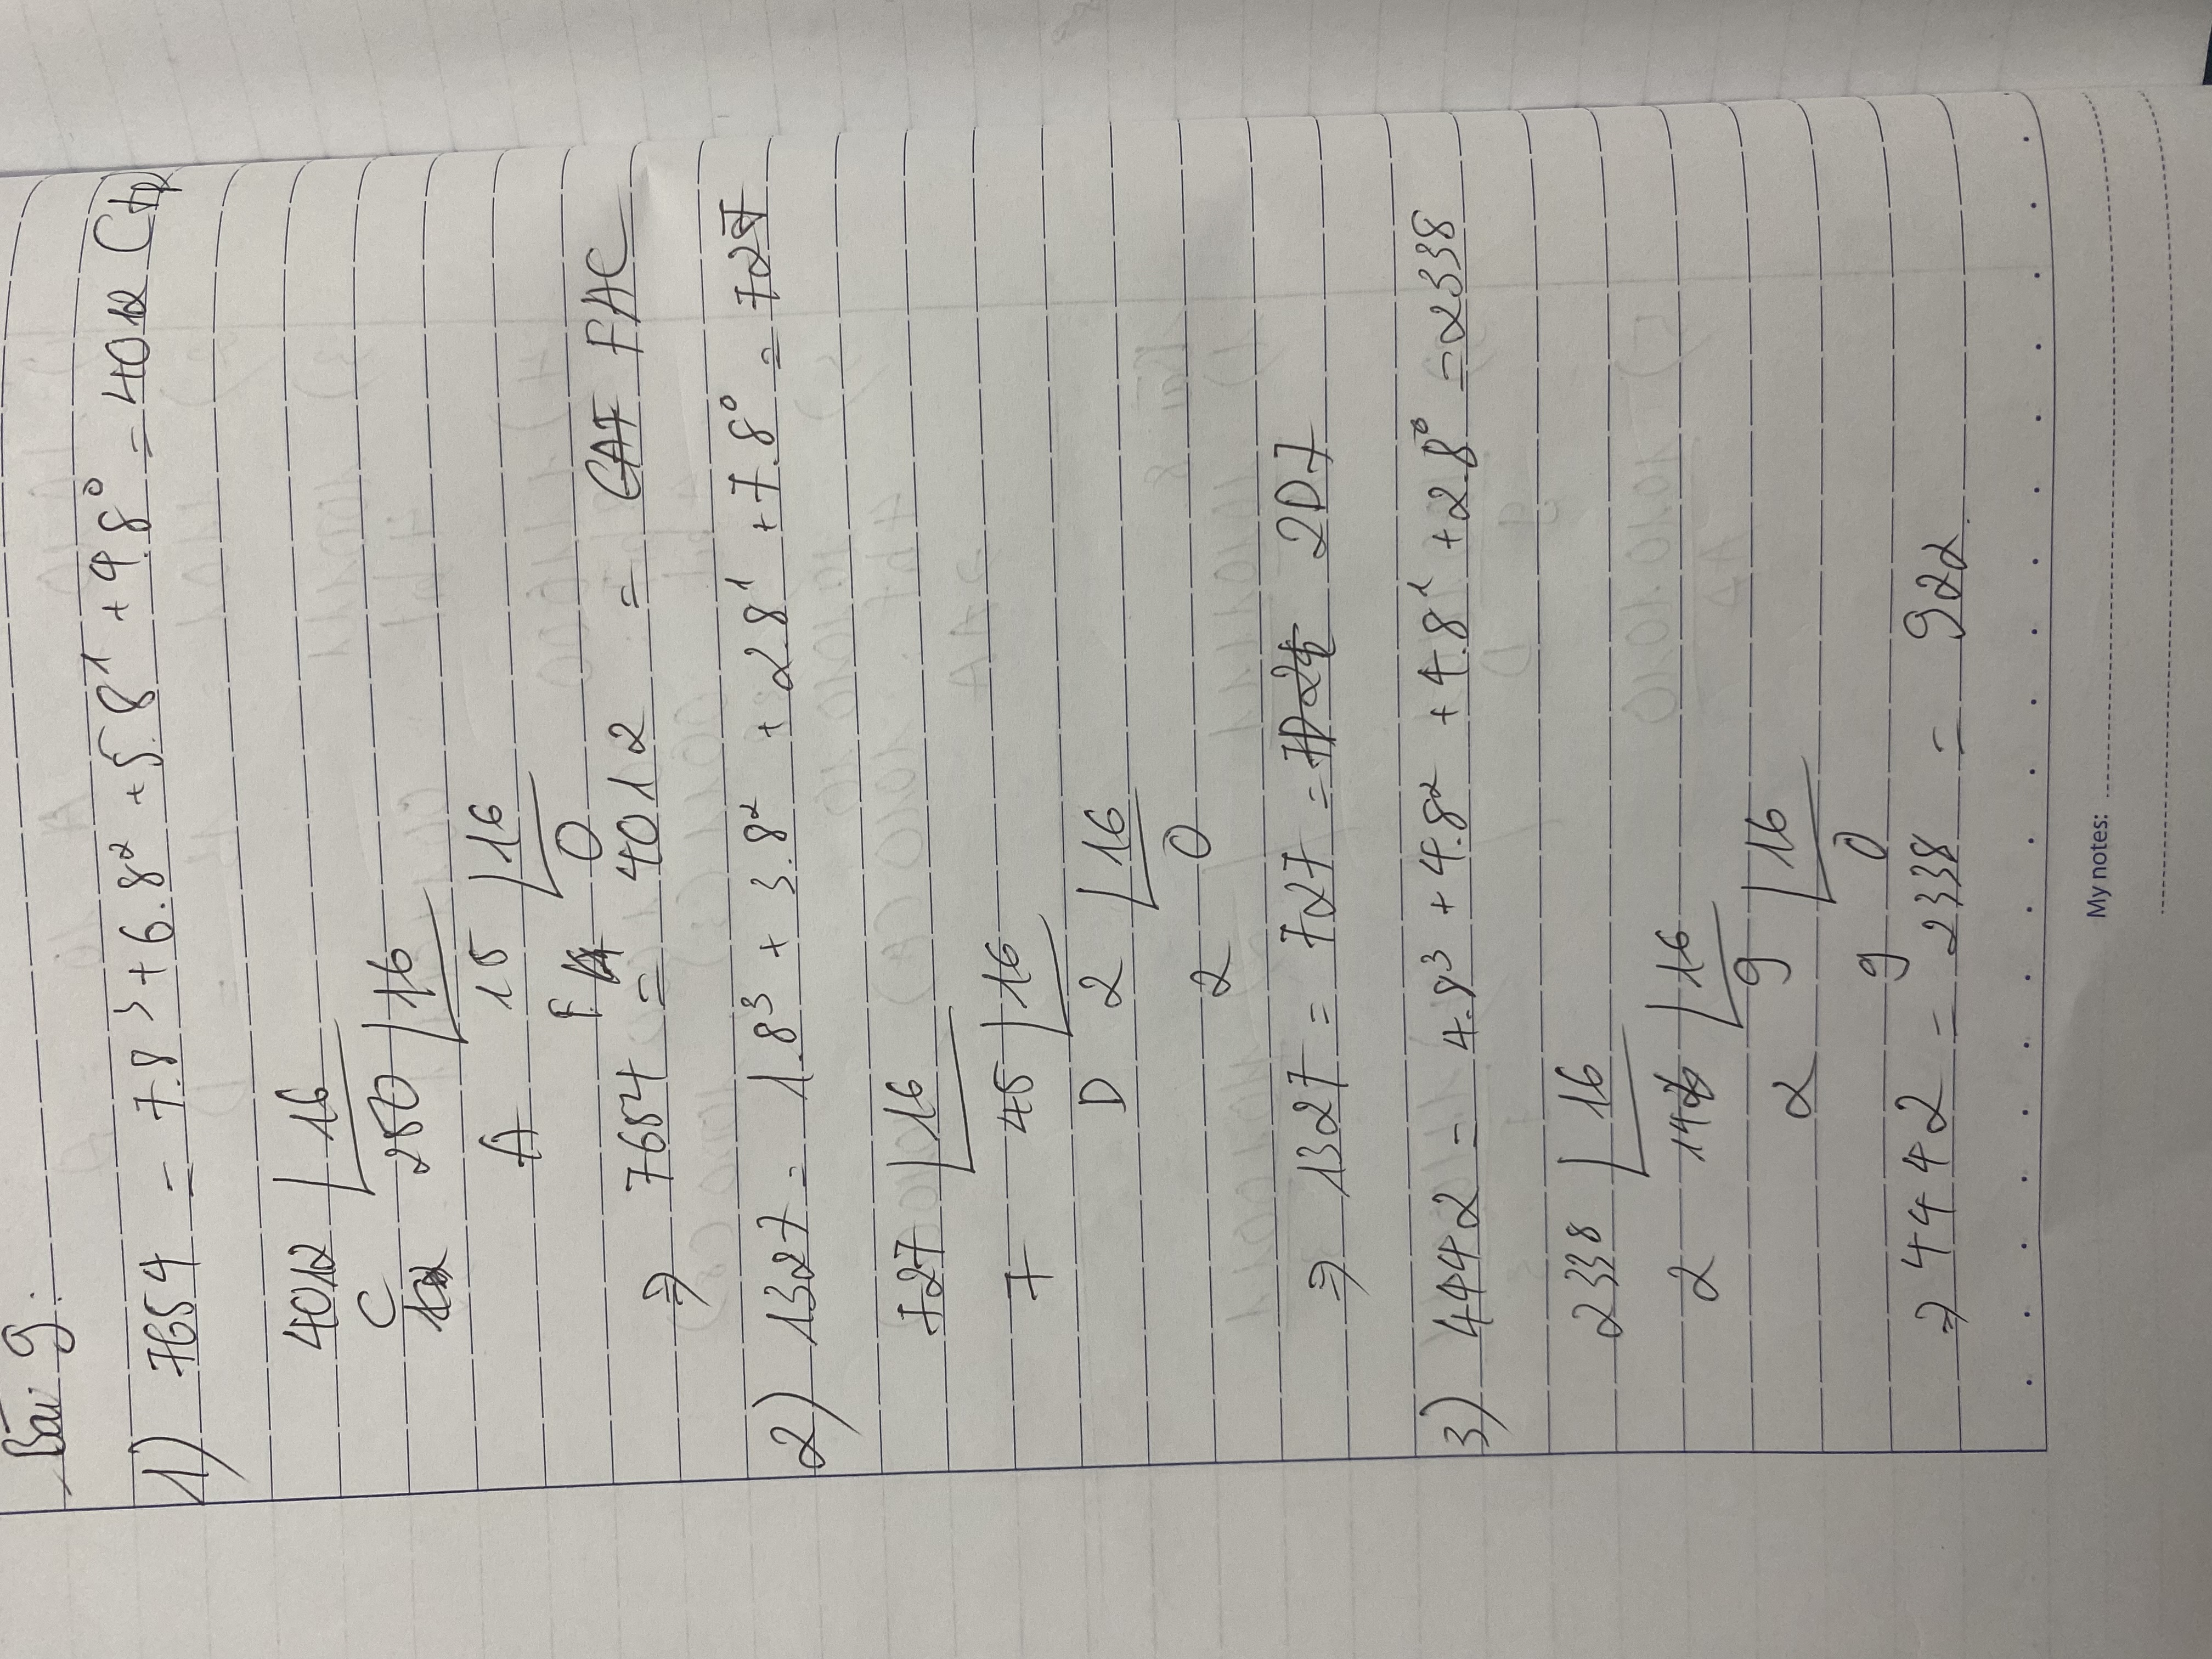 Bài 9:
1) 7654 = 7.8³ + 6.8² + 5.8¹ + 4.8⁰ = 4012 (
4012 16
C 250 16
A 15 16
F 0
⇒ 7654 = 4012 = CAF FAC
2) 1327 = 1.8³ + 3.8² + 2.8¹ + 7.8⁰ = 727
727 16
7 45 16
D 2 16
2 0
⇒ 1327 = 727 = 2D7
3) 4442 = 4.8³ + 4.8² + 4.8¹ + 2.8⁰ = 2338
2338 16
2 16
2 9 16
9 0
⇒ 4442 = 2338 = 922.
My notes: